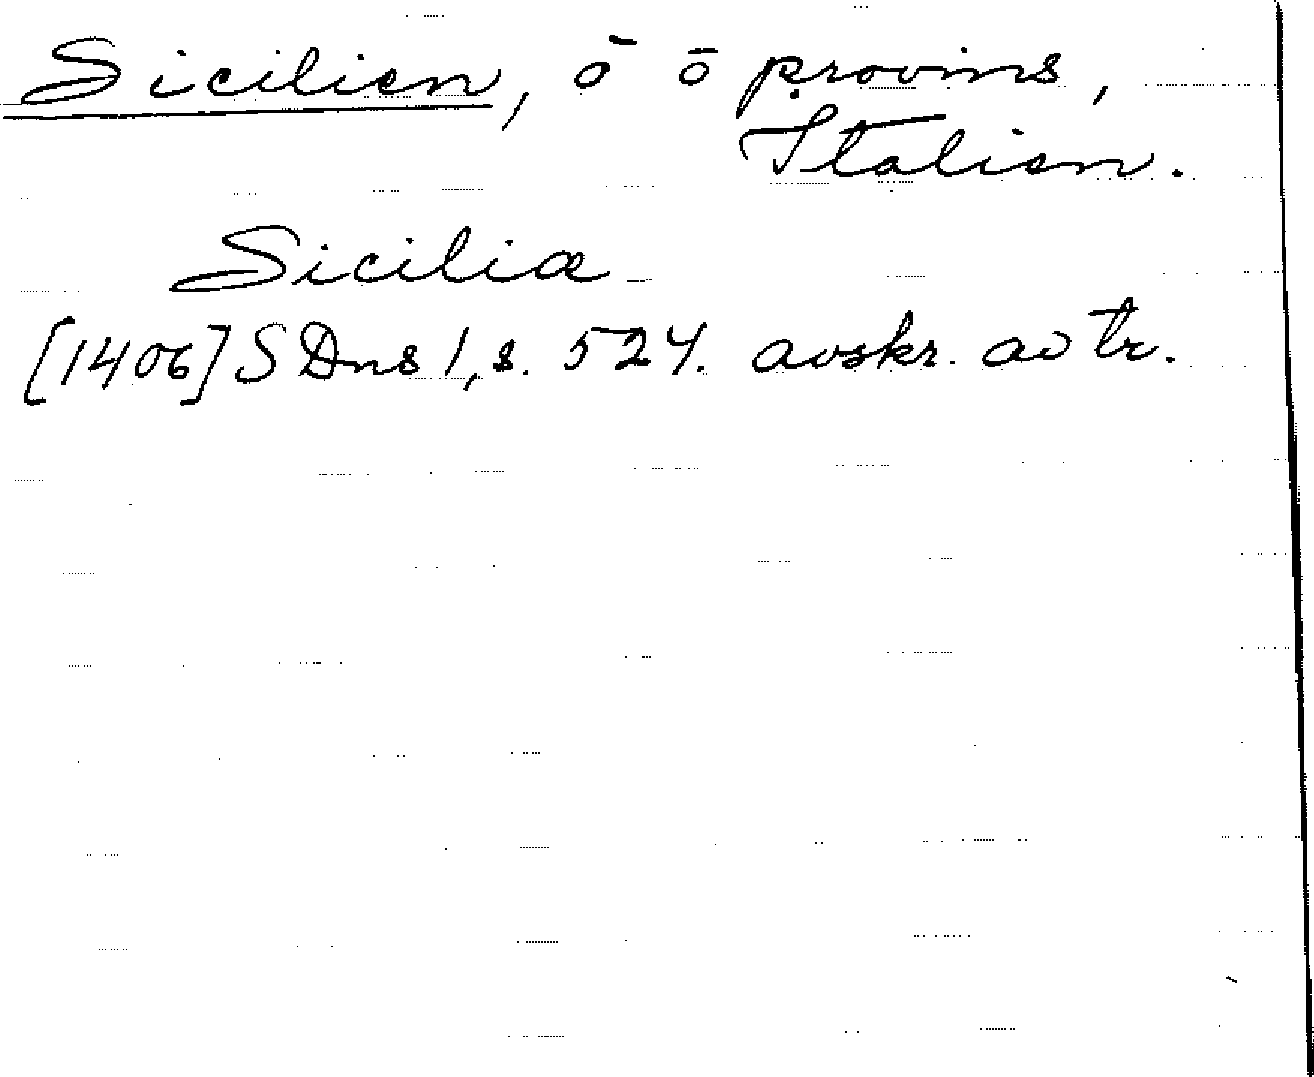 Sicilien, ö ō provins,
Italien.
Siciliæ
[1406] SDns 1, s. 524. avskr. av tr.